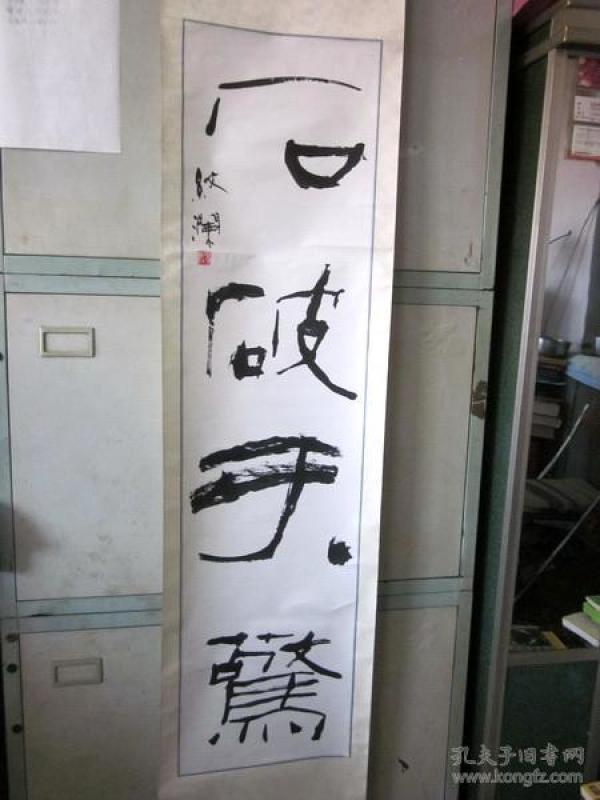 石破天驚
孔夫子旧书网
www.kongfz.com